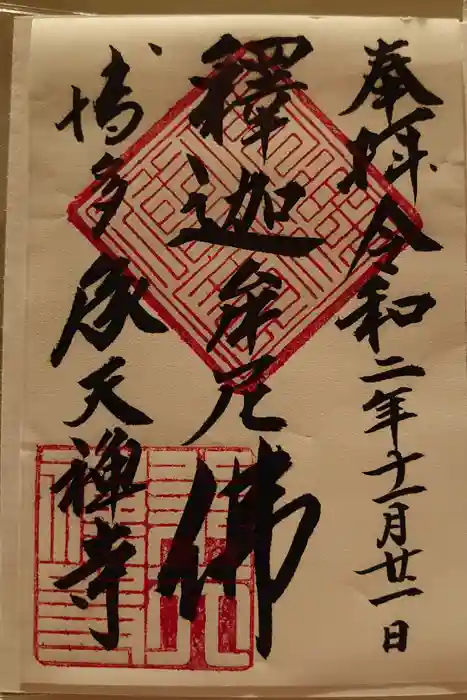 奉拝 令和二年十一月廿一日
釋迦牟尼佛
博多 承天禅寺